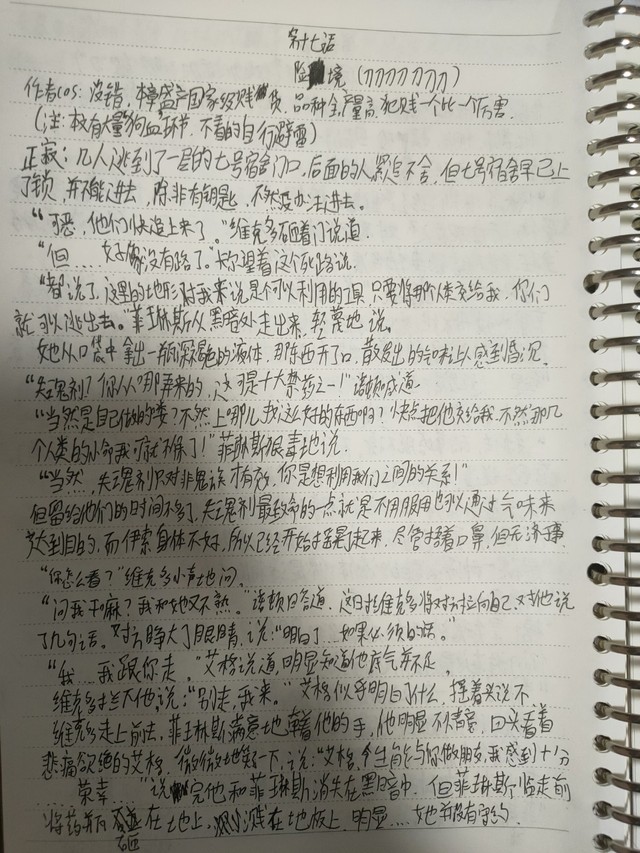 第十七话
险境(刀刀刀刀刀刀刀)
作者cos:没错,樟盛产国家级贱货,品种全产量高,犯贱一个比一个厉害.
(注:本章有大量狗血环节,不看的自行避雷)
正寂:几人逃到了一层的七号宿舍门口,后面的人累追不舍,但七号宿舍早已上
了锁,并不能进去,除非有钥匙,不然没办法进去。
“可恶,他们快追上来了。”维克多砸着门说道.
“但……好像没有路了。”望着这个死路说.
“都说了,这里的地形对我来说是个可以利用的工具,只要将那个人类交给我,你们
就可以逃出去。”菲琳斯从黑暗处走出来,轻蔑地说.
她从口袋中拿出一瓶深色的液体,那东西开了口,散发出的气味让人感到昏沉.
“失魂剂?你从哪弄来的,这可是十大禁药之一!”诺顿喊道.
“当然是自己做的喽?不然上哪儿找这么好的东西啊?快点把他交给我,不然那几
个人类的小命我可就不保了!”菲琳斯狠毒地说.
“当然,失魂剂只对非鬼族才有效,你是想利用我们之间的关系!”
但留给他们的时间不多了,失魂剂最致命的一点就是不用服用也可以通过气味来
达到目的,而伊索身体不好,所以已经开始摇晃起来,尽管捂着口鼻,但无济于事.
“你怎么看?”维克多小声地问.
“问我干嘛?我和她又不熟。”诺顿回答道,这时维克多将对方拉向自己,对他说
了几句话。对方睁大了眼睛,说:“明白了…如果必须的话。”
“我……我跟你走。”艾格说道,明显知道他底气并不足.
维克多拦下他说:“别走,我来。”艾格似乎明白了什么,摇着头说不.
维克多走上前去,菲琳斯满意地牵着他的手,他明显不情愿,回头看着
悲痛欲绝的艾格,微微地笑了一下,说:“艾格,今生能与你做朋友,我感到十分
荣幸……”说完他和菲琳斯消失在黑暗中.但菲琳斯临走前
将药剂瓶砸在地上,溅在地板上,明显……她并没有守约.
砸